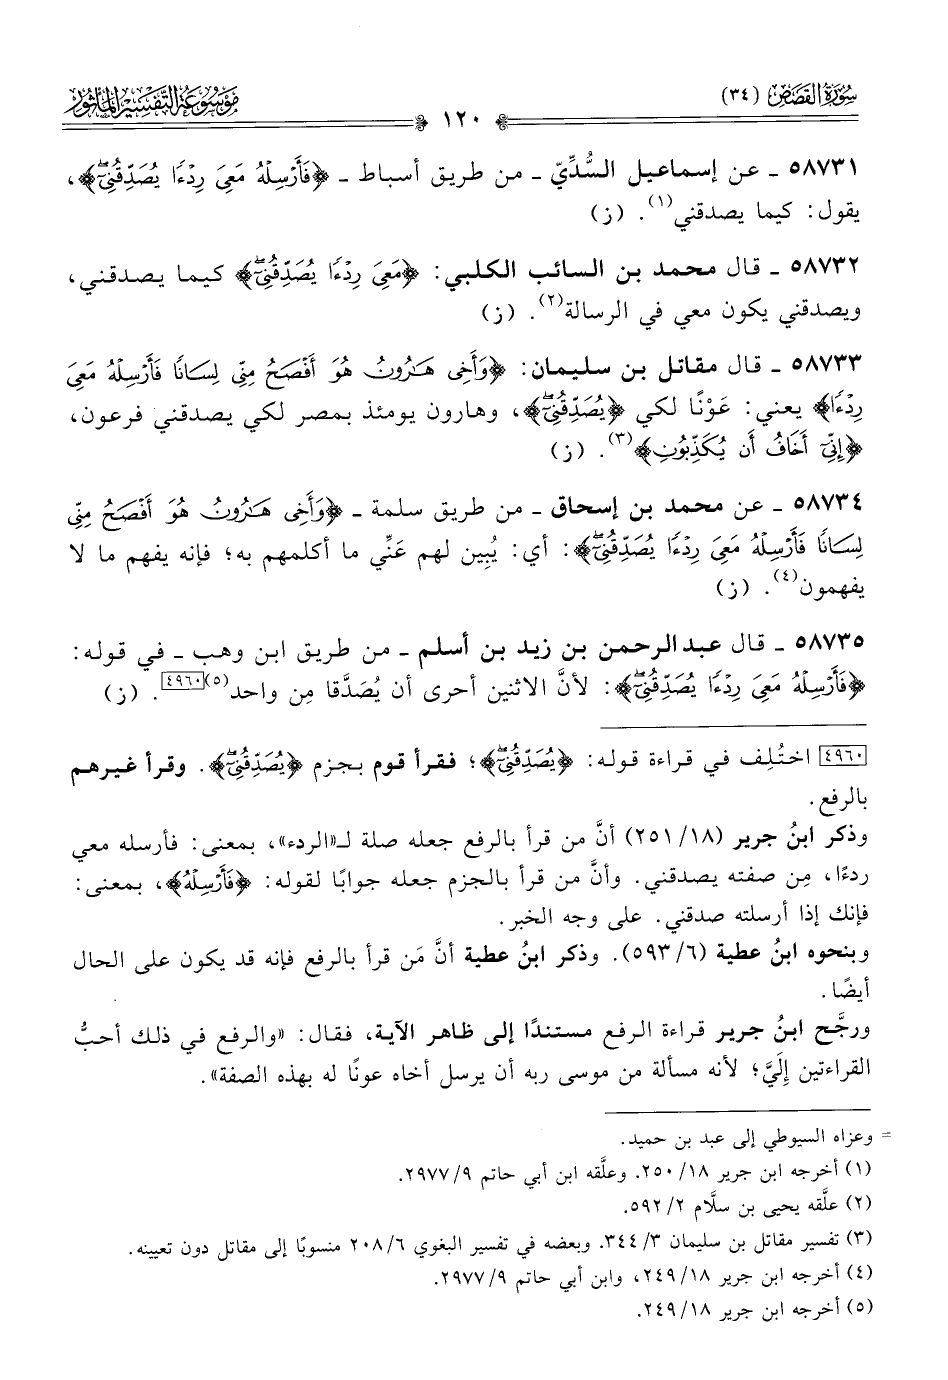 سُورَةُ القَصَصِ (٣٤)
١٢٠
مَوْسُوعَةُ التَّفْسِيرِ المَأْثُورِ
٥٨٧٣١ ـ عن إسماعيل السُّدِّيّ ـ من طريق أسباط ـ ﴿فَأَرْسِلْهُ مَعِيَ رِدْءًا يُصَدِّقُنِيٓ﴾،
يقول: كيما يصدقني(١). (ز)
٥٨٧٣٢ ـ قال محمد بن السائب الكلبي: ﴿مَعِيَ رِدْءًا يُصَدِّقُنِيٓ﴾ كيما يصدقني،
ويصدقني يكون معي في الرسالة(٢). (ز)
٥٨٧٣٣ ـ قال مقاتل بن سليمان: ﴿وَأَخِي هَٰرُونُ هُوَ أَفْصَحُ مِنِّي لِسَانًا فَأَرْسِلْهُ مَعِيَ
رِدْءًا﴾ يعني: عَوْنًا لكي ﴿يُصَدِّقُنِيٓ﴾، وهارون يومئذ بمصر لكي يصدقني فرعون،
﴿إِنِّيٓ أَخَافُ أَن يُكَذِّبُونِ﴾(٣). (ز)
٥٨٧٣٤ ـ عن محمد بن إسحاق ـ من طريق سلمة ـ ﴿وَأَخِي هَٰرُونُ هُوَ أَفْصَحُ مِنِّي
لِسَانًا فَأَرْسِلْهُ مَعِيَ رِدْءًا يُصَدِّقُنِيٓ﴾: أي: يُبِين لهم عَنِّي ما أكلمهم به؛ فإنه يفهم ما لا
يفهمون(٤). (ز)
٥٨٧٣٥ ـ قال عبدالرحمن بن زيد بن أسلم ـ من طريق ابن وهب ـ في قوله:
﴿فَأَرْسِلْهُ مَعِيَ رِدْءًا يُصَدِّقُنِيٓ﴾: لأنَّ الاثنين أحرى أن يُصَدَّقا مِن واحد(٥)[٤٩٦٠]. (ز)
[٤٩٦٠] اختُلِف في قراءة قوله: ﴿يُصَدِّقُنِيٓ﴾؛ فقرأ قوم بجزم ﴿يُصَدِّقُنِيٓ﴾. وقرأ غيرهم
بالرفع.
وذكر ابنُ جرير (١٨/ ٢٥١) أنَّ من قرأ بالرفع جعله صلة لـ«الردء»، بمعنى: فأرسله معي
ردءًا، مِن صفته يصدقني. وأنَّ من قرأ بالجزم جعله جوابًا لقوله: ﴿فَأَرْسِلْهُ﴾، بمعنى:
فإنك إذا أرسلته صدقني. على وجه الخبر.
وبنحوه ابنُ عطية (٦/ ٥٩٣). وذكر ابنُ عطية أنَّ مَن قرأ بالرفع فإنه قد يكون على الحال
أيضًا.
ورجَّح ابنُ جرير قراءة الرفع مستندًا إلى ظاهر الآية، فقال: «والرفع في ذلك أحبُّ
القراءتين إِلَيَّ؛ لأنه مسألة من موسى ربه أن يرسل أخاه عونًا له بهذه الصفة».
= وعزاه السيوطي إلى عبد بن حميد.
(١) أخرجه ابن جرير ١٨/ ٢٥٠. وعلَّقه ابن أبي حاتم ٩/ ٢٩٧٧.
(٢) علَّقه يحيى بن سلَّام ٢/ ٥٩٢.
(٣) تفسير مقاتل بن سليمان ٣/ ٣٤٤. وبعضه في تفسير البغوي ٦/ ٢٠٨ منسوبًا إلى مقاتل دون تعيينه.
(٤) أخرجه ابن جرير ١٨/ ٢٤٩، وابن أبي حاتم ٩/ ٢٩٧٧.
(٥) أخرجه ابن جرير ١٨/ ٢٤٩.